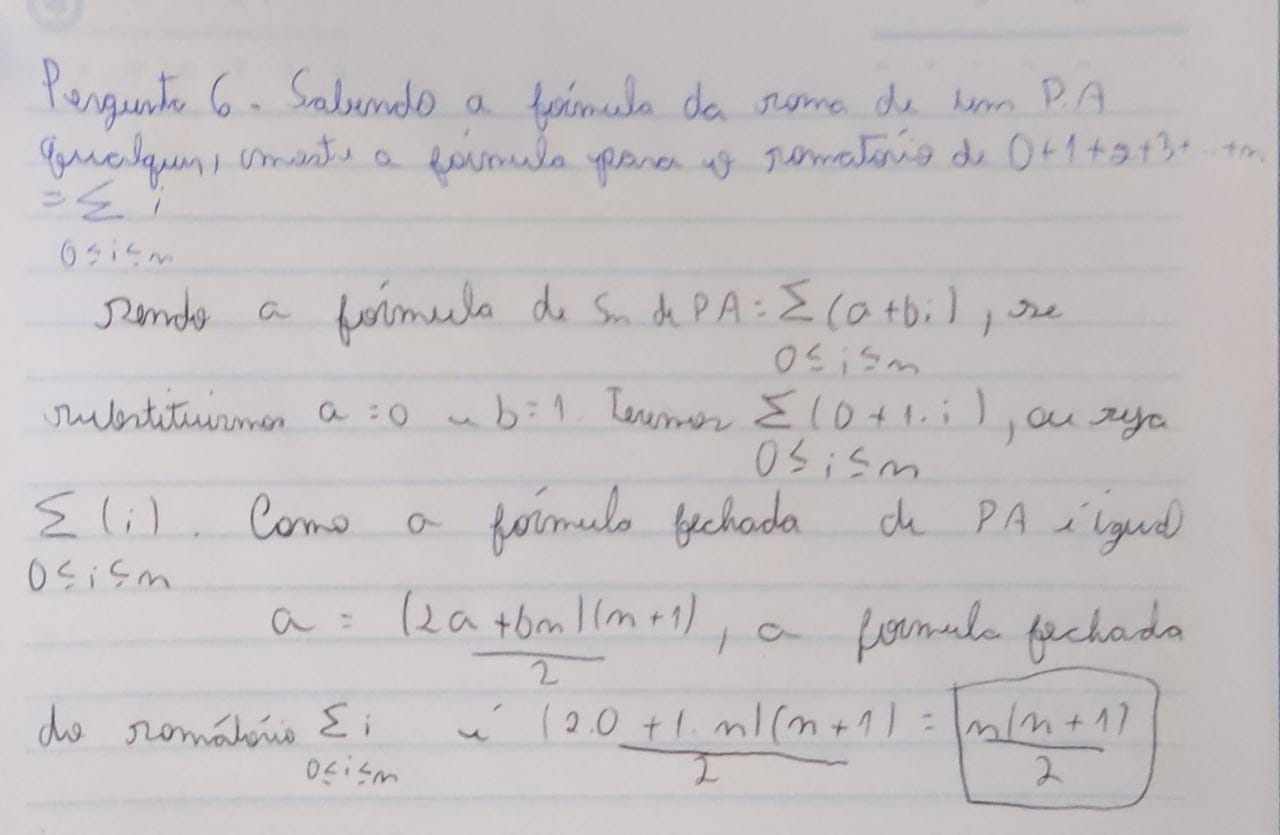 Pergunta 6. Sabendo a fórmula da soma de um P.A
qualquer, mostre a fórmula para o somatório de 0+1+2+3+...+n
= Σ i
0≤i≤n
Sendo a fórmula de Sn de PA: Σ (a+bi), se
0≤i≤n
substituirmos a=0 e b=1. Teremos Σ (0+1.i), ou seja
0≤i≤n
Σ (i). Como a fórmula fechada de PA é igual
0≤i≤n
a = (2a+bn)(n+1), a formula fechada
2
do somátório Σ i é (2.0+1.n)(n+1) = n(n+1)
0≤i≤n 2 2